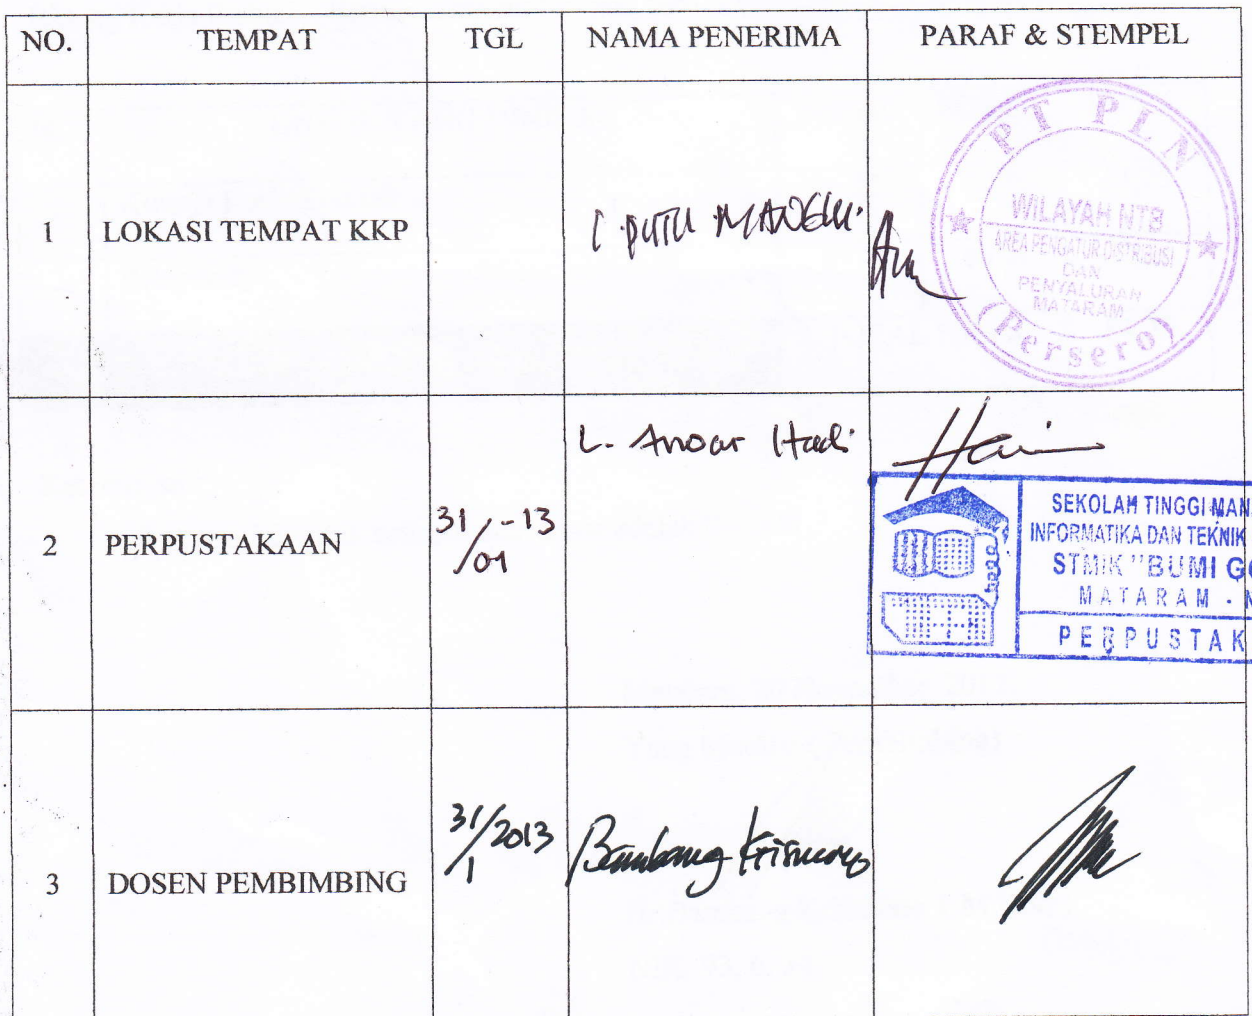 NO. TEMPAT TGL NAMA PENERIMA PARAF & STEMPEL
1 LOKASI TEMPAT KKP I PUTU
PT PLN
WILAYAH NTB
AREA PENGATUR DISTRIBUSI
DAN
PENYALURAN
MATARAM
(Persero)
2 PERPUSTAKAAN 31/01-13 L. Anwar Hadi
SEKOLAH TINGGI MAN
INFORMATIKA DAN TEKNIK
STMIK "BUMI GO
MATARAM - N
PERPUSTAK
3 DOSEN PEMBIMBING 31/1/2013 Bambang Krismono